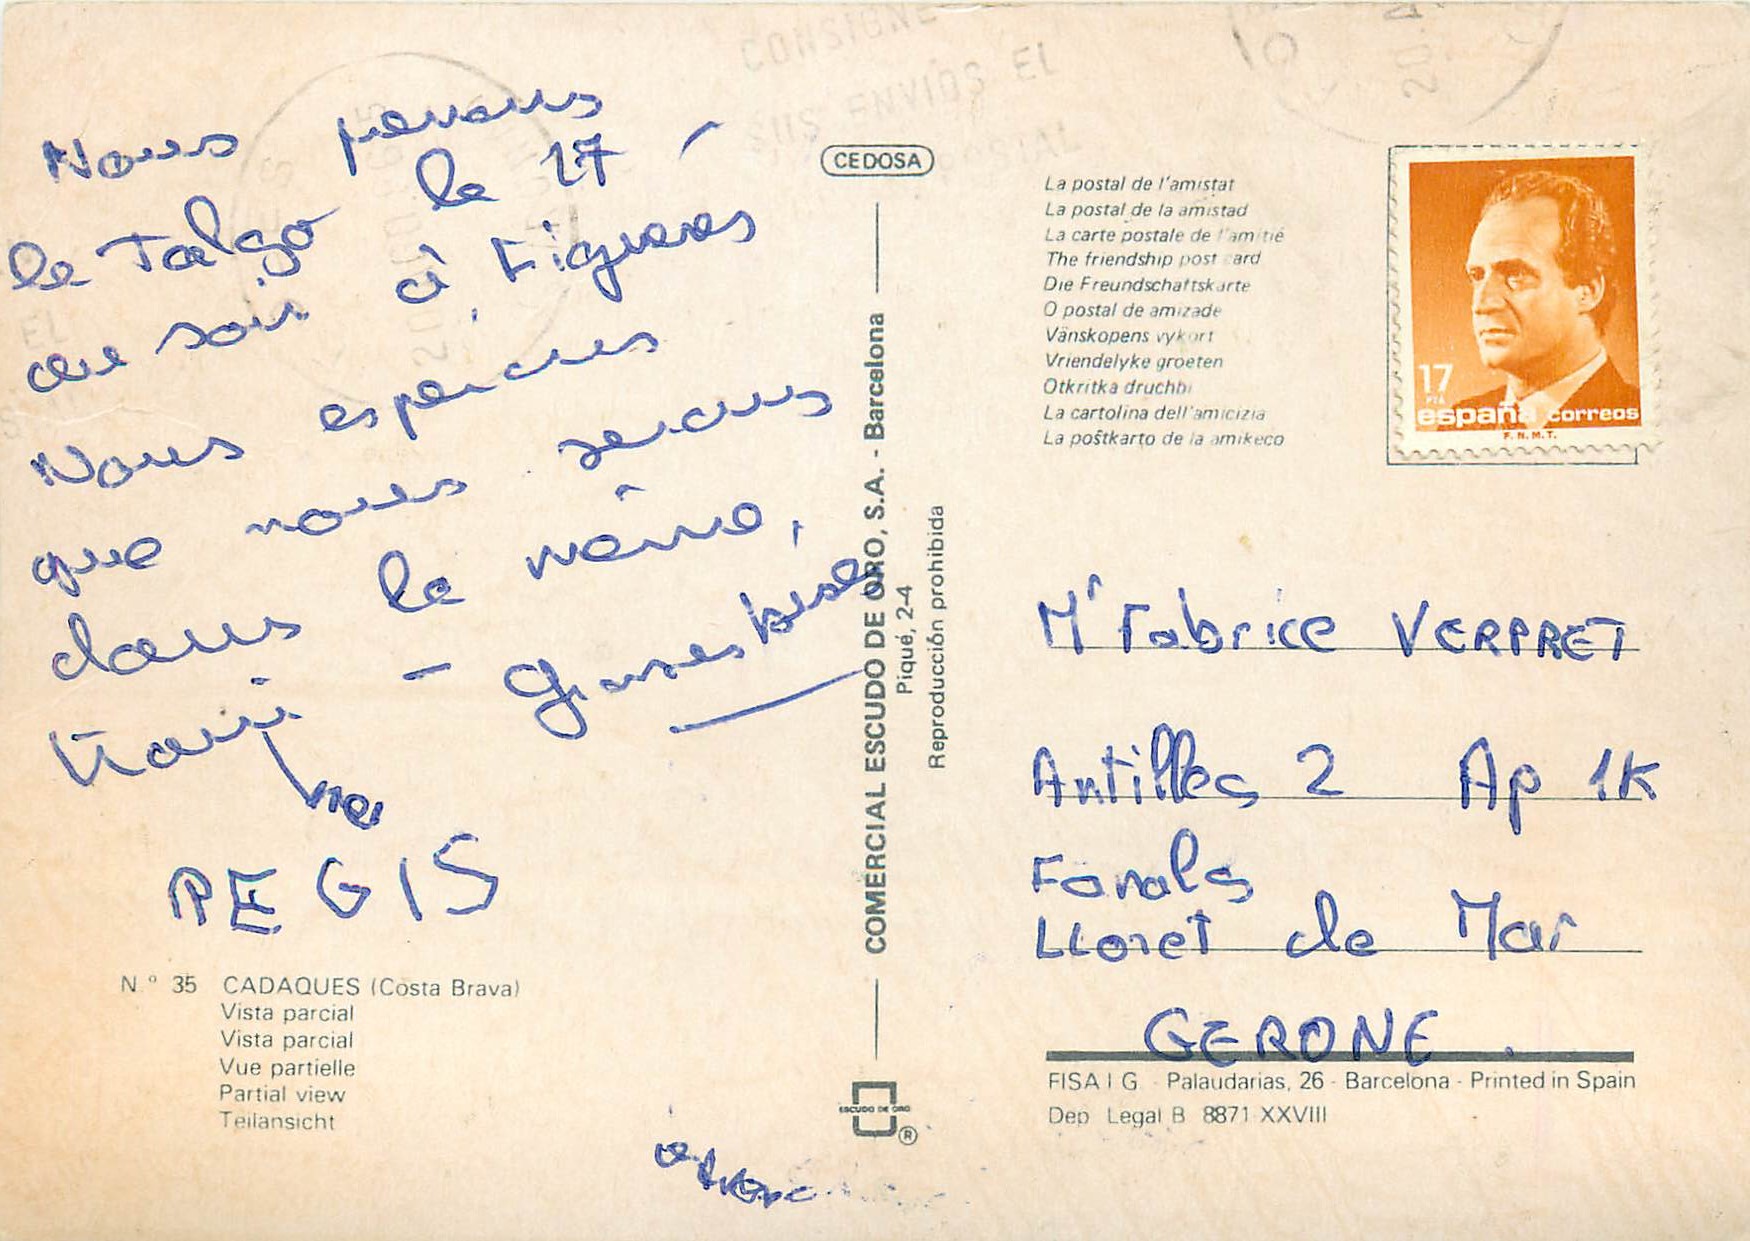 CONSIGNE
SUS ENVIOS EL
Nous
le Talgo le 17 -
au soir à Figueras
Nous esperons
que nous serons
dans le même,
train - Grosses bises
REGIS
N.° 35 CADAQUES (Costa Brava)
Vista parcial
Vista parcial
Vue partielle
Partial view
Teilansicht
CEDOSA
COMERCIAL ESCUDO DE ORO, S.A. - Barcelona
Piqué, 2-4
Reproducción prohibida
ESCUDO DE ORO
®
La postal de l'amistat
La postal de la amistad
La carte postale de l'amitié
The friendship post card
Die Freundschaftskarte
O postal de amizade
Vänskopens vykort
Vriendelyke groeten
Otkritka druchbi
La cartolina dell'amicizia
La poŝtkarto de la amikeco
17
PTA
españa correos
F.N.M.T.
Mr Fabrice VERPRET
Antilles 2 Ap 1K
Fanals
LLoret de Mar
GERONE.
FISA I G - Palaudarias, 26 - Barcelona - Printed in Spain
Dep Legal B 8871-XXVIII